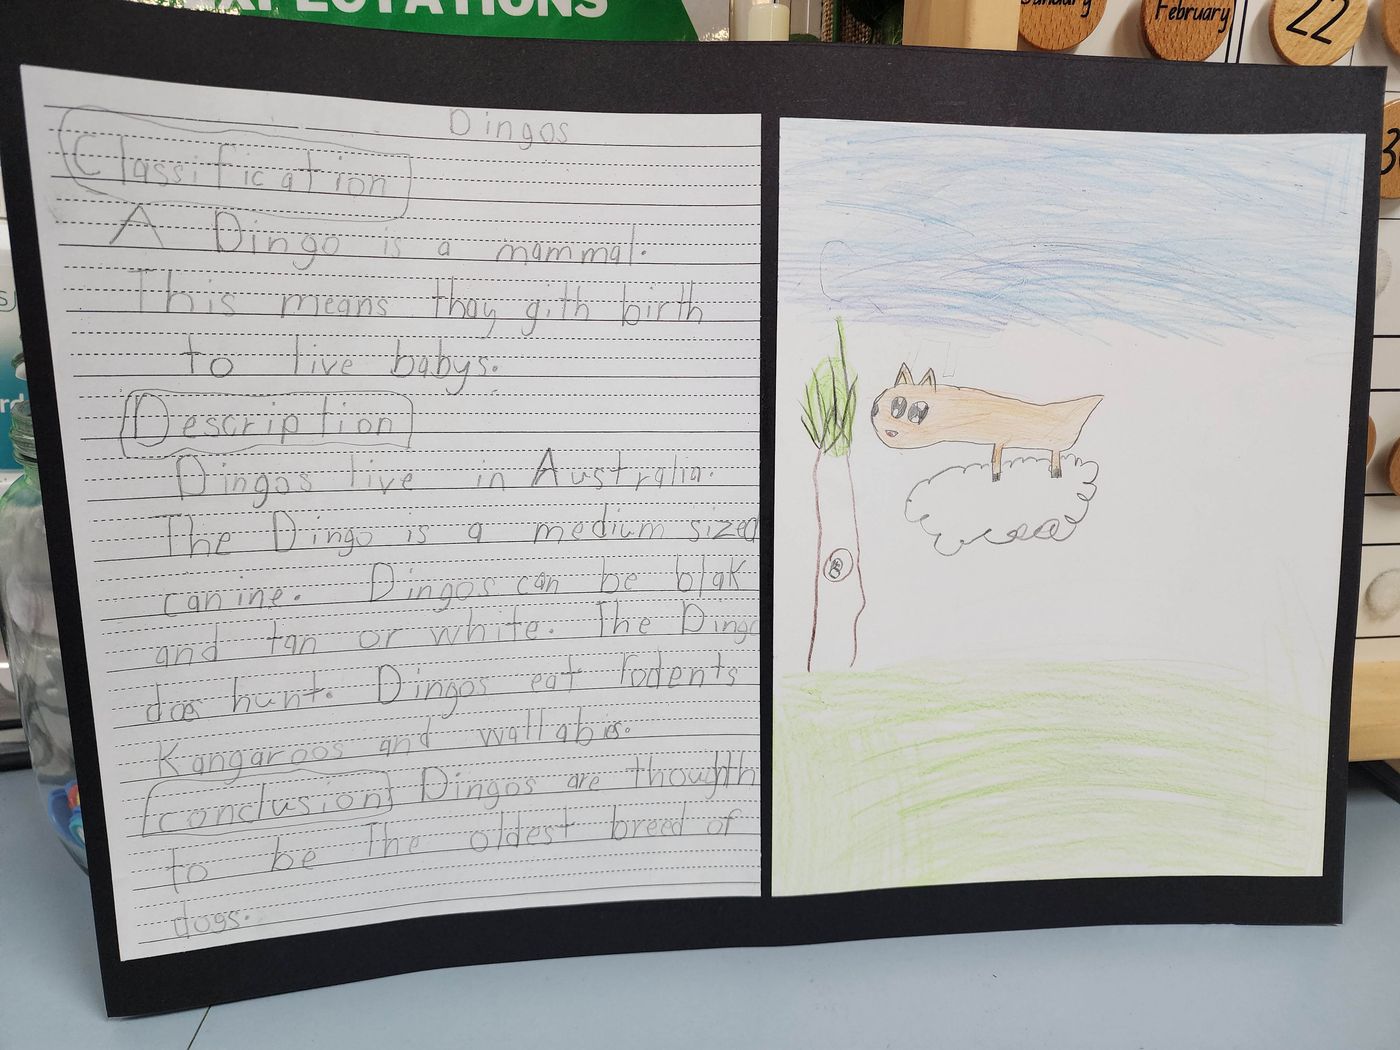 EXPECTATIONS
January
February
22
Dingos
Classification
A Dingo is a mammal.
This means thay gith birth
to live babys.
Description
Dingos live in Australia.
The Dingo is a medium sized
canine. Dingos can be blak
and tan or white. The Dingo
dos hunt. Dingos eat rodents
Kangaroos and wallabis.
Conclusion Dingos are thoughth
to be The oldest breed of
dogs.